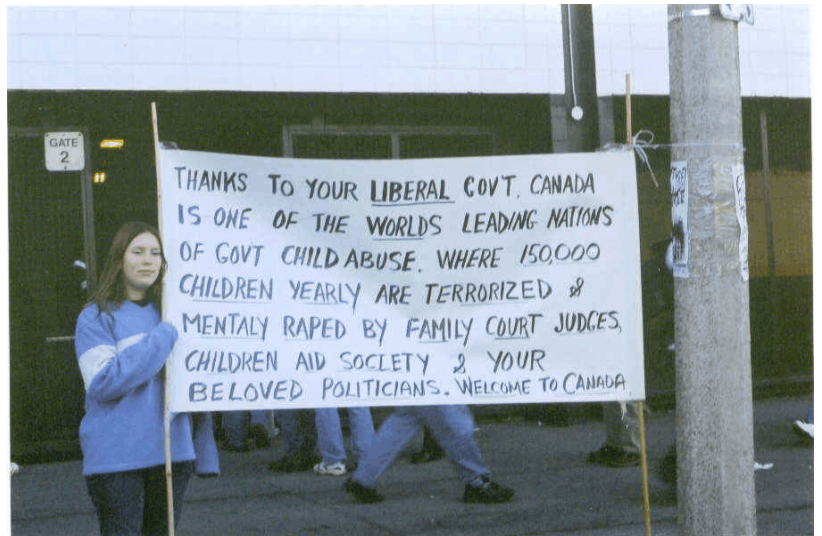 GATE
2
THANKS TO YOUR LIBERAL GOVT. CANADA
IS ONE OF THE WORLDS LEADING NATIONS
OF GOVT CHILD ABUSE. WHERE 150,000
CHILDREN YEARLY ARE TERRORIZED &
MENTALY RAPED BY FAMILY COURT JUDGES,
CHILDREN AID SOCIETY & YOUR
BELOVED POLITICIANS. WELCOME TO CANADA.